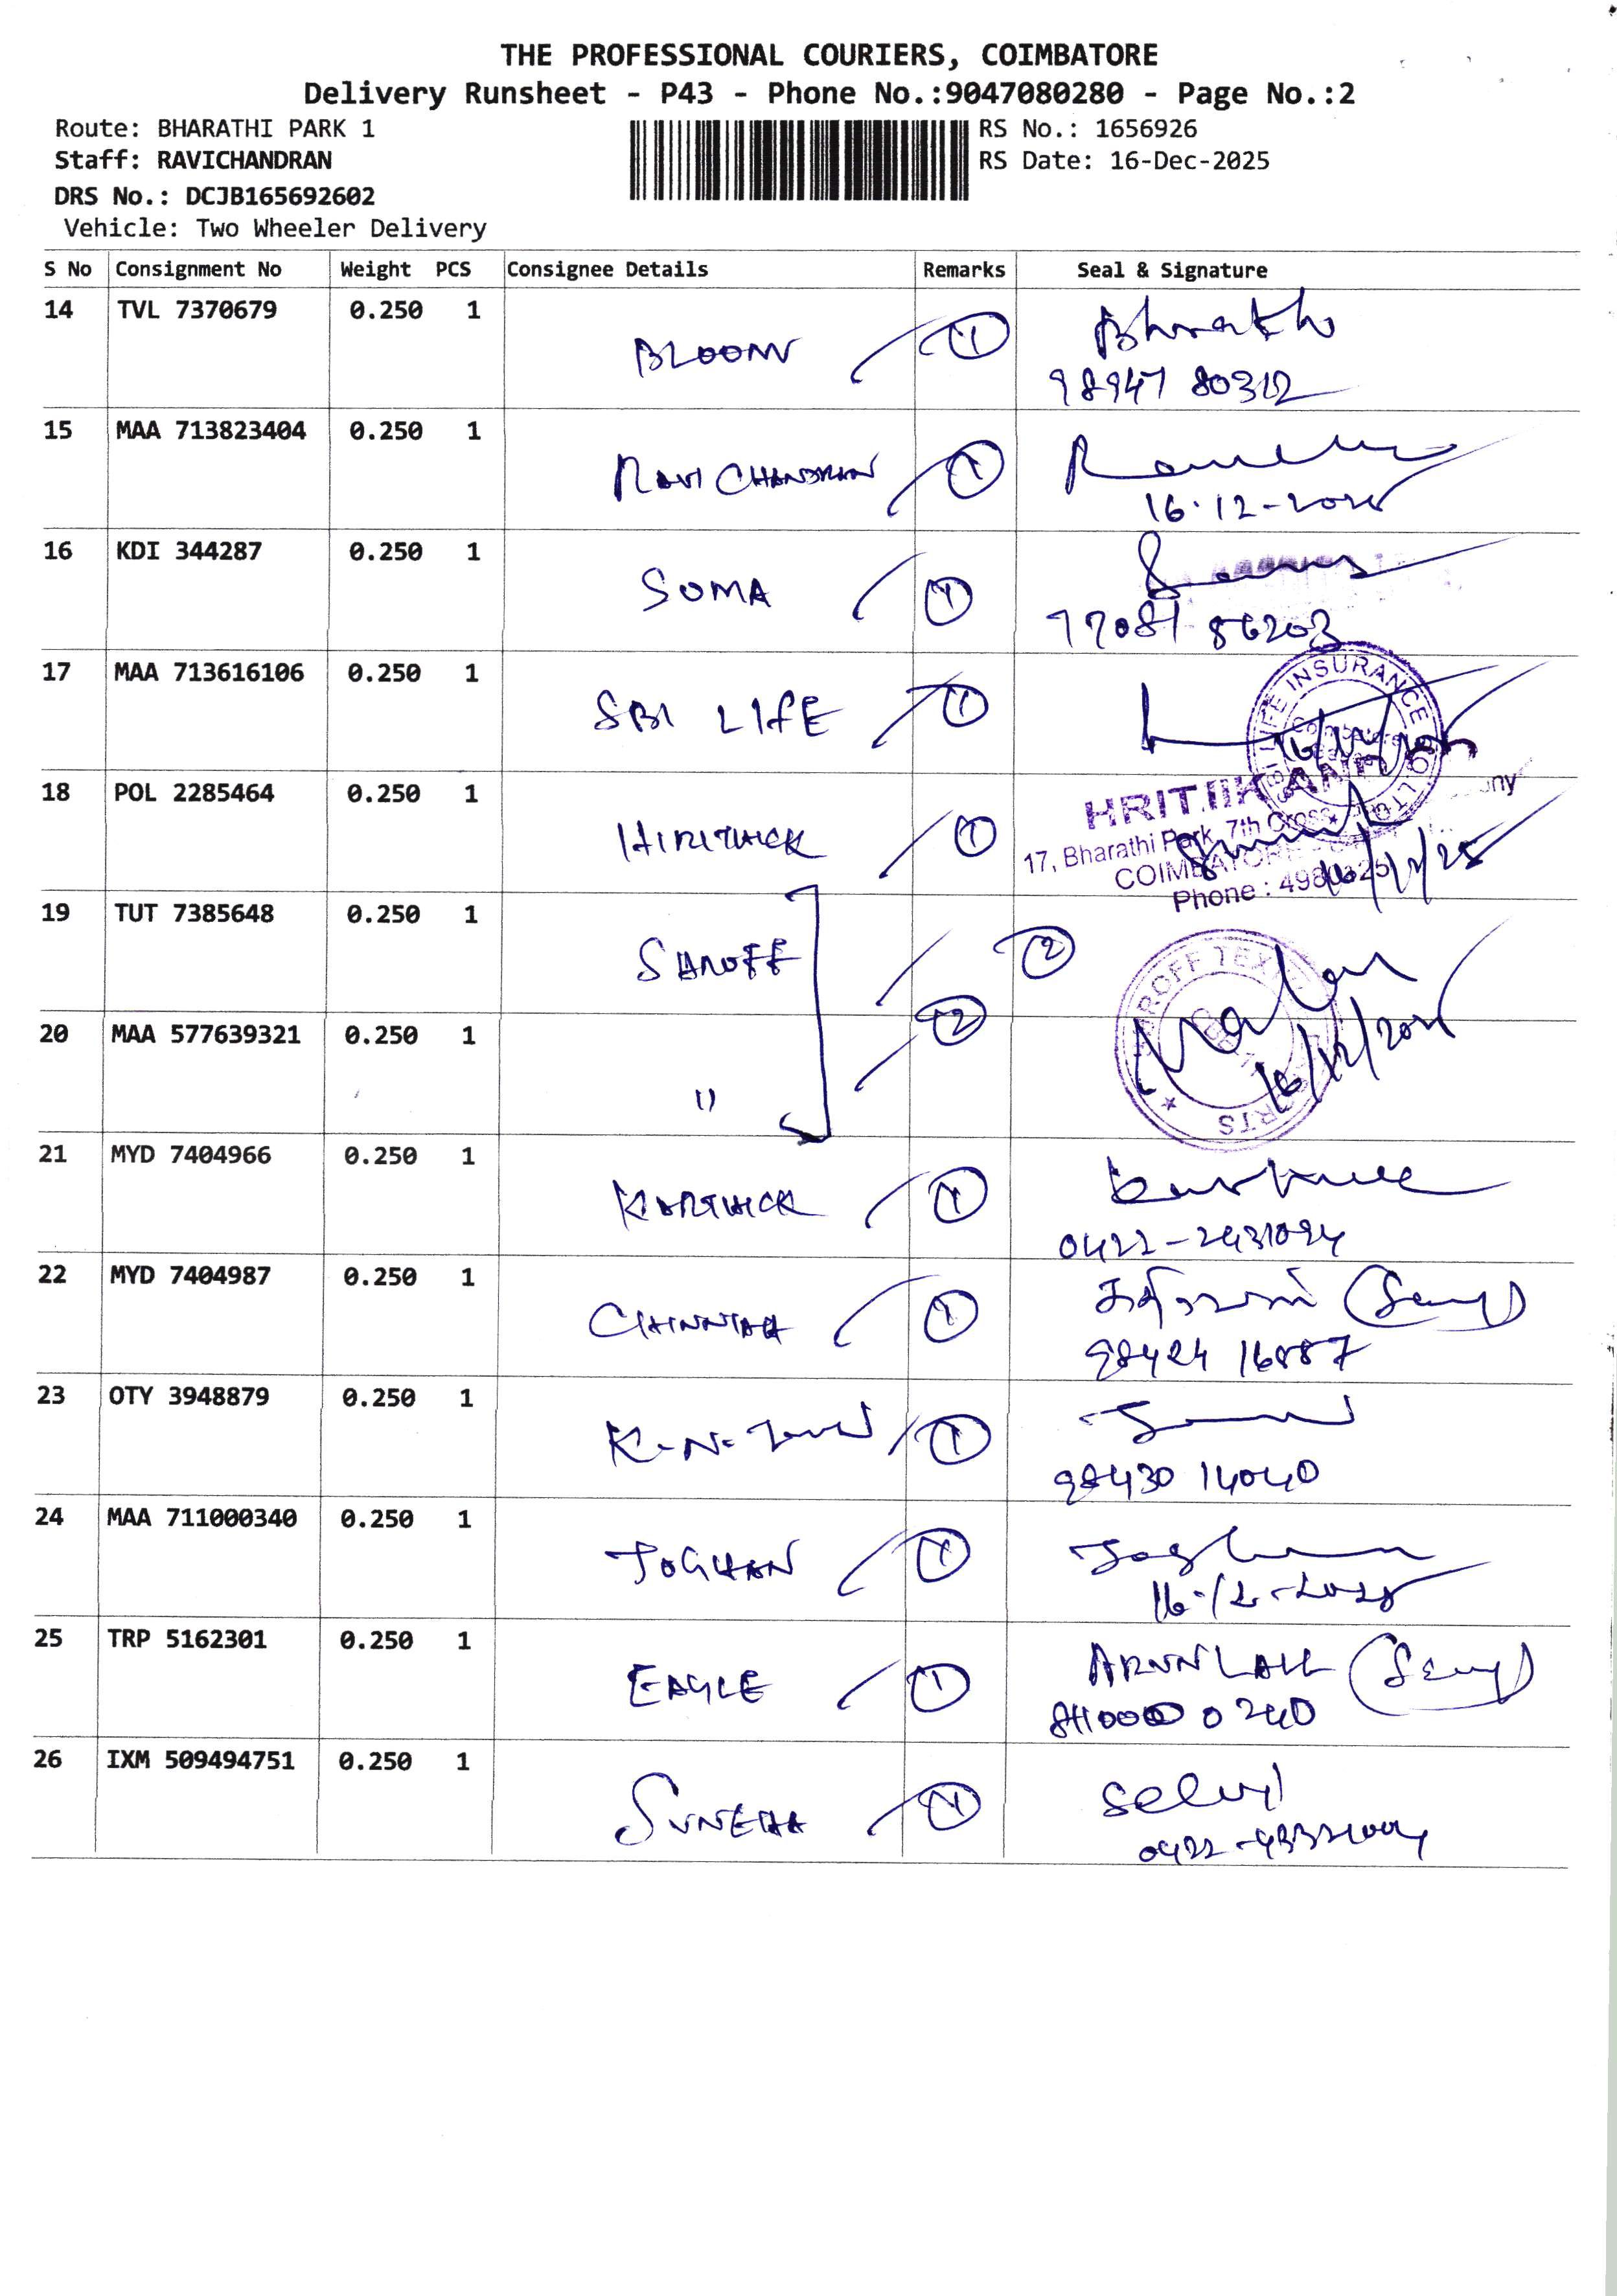 THE PROFESSIONAL COURIERS, COIMBATORE
Delivery Runsheet - P43 - Phone No.:9047080280 - Page No.:2
Route: BHARATHI PARK 1
RS No.: 1656926
Staff: RAVICHANDRAN
RS Date: 16-Dec-2025
DRS No.: DCJB165692602
Vehicle: Two Wheeler Delivery
S No Consignment No Weight PCS Consignee Details Remarks Seal & Signature
14 TVL 7370679 0.250 1 BLOOM 1 Bharath
98947 80312
15 MAA 713823404 0.250 1 RAVI CHANDRAN 1
16.12-2025
16 KDI 344287 0.250 1 SOMA 1
86203
17 MAA 713616106 0.250 1 SBI LIFE 1
SBI LIFE INSURANCE CO. LTD
18 POL 2285464 0.250 1 HIRITHICK 1
17, Bharathi Park, 7th Cross
COIMBATORE
Phone :
16/12/25
19 TUT 7385648 0.250 1 SAROFF 2
SAROFF TEX
20 MAA 577639321 0.250 1 " 2
16/12/2025
21 MYD 7404966 0.250 1 KARTHICK 1
0422-2431094
22 MYD 7404987 0.250 1 CHINNIAH 1
98424 16887
23 OTY 3948879 0.250 1 K.N. 1
98430 14040
24 MAA 711000340 0.250 1 JOGHAN 1
16-12-2025
25 TRP 5162301 0.250 1 EAGLE 1 ARUN LALL
0240
26 IXM 509494751 0.250 1 SUNEHA 1 Selvi
0422-